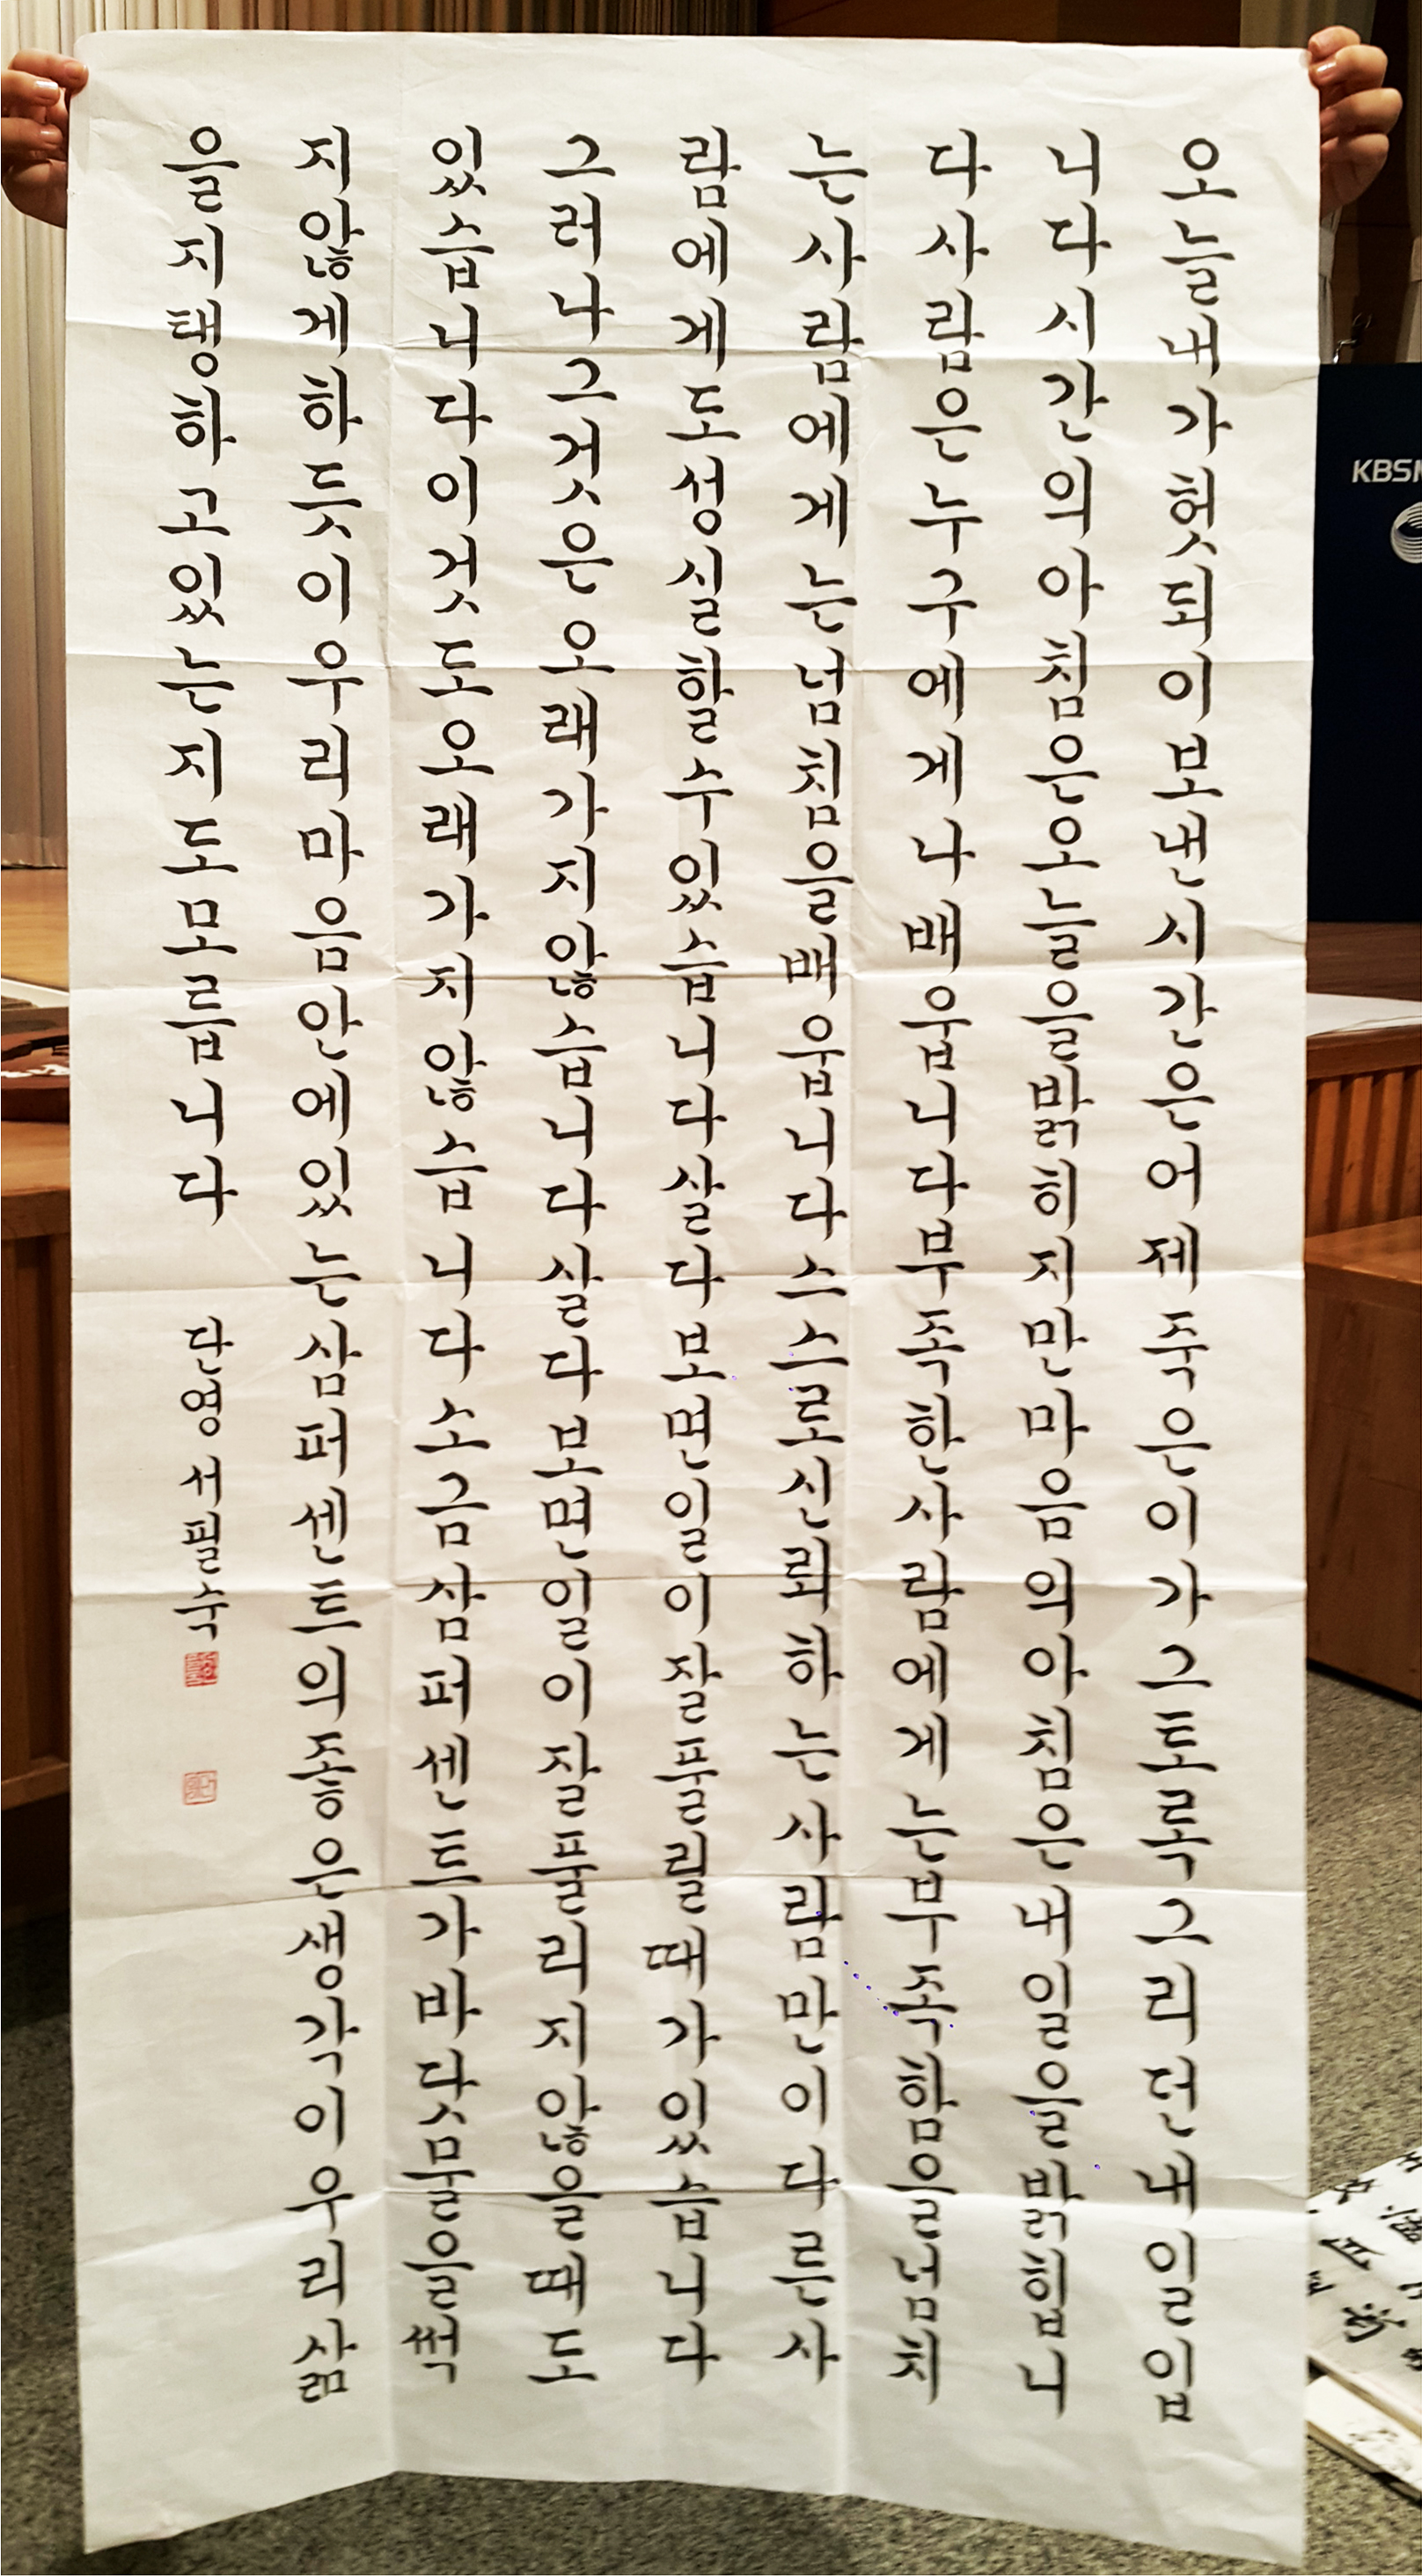 오늘내가헛되이보낸시간은어제죽은이가그토록그리던내일입
니다시간의아침은오늘을밝히지만마음의아침은내일을밝힙니
다사람은누구에게나배웁니다부족한사람에게는부족함을넘치
는사람에게는넘침을배웁니다스스로신뢰하는사람만이다른사
람에게도성실할수있습니다살다보면일이잘풀릴때가있습니다
그러나그것은오래가지않습니다살다보면일이잘풀리지않을때도
있습니다이것도오래가지않습니다소금삼퍼센트가바닷물을썩
지않게하듯이우리마음안에있는삼퍼센트의좋은생각이우리삶
을지탱하고있는지도모릅니다
단영
KBS